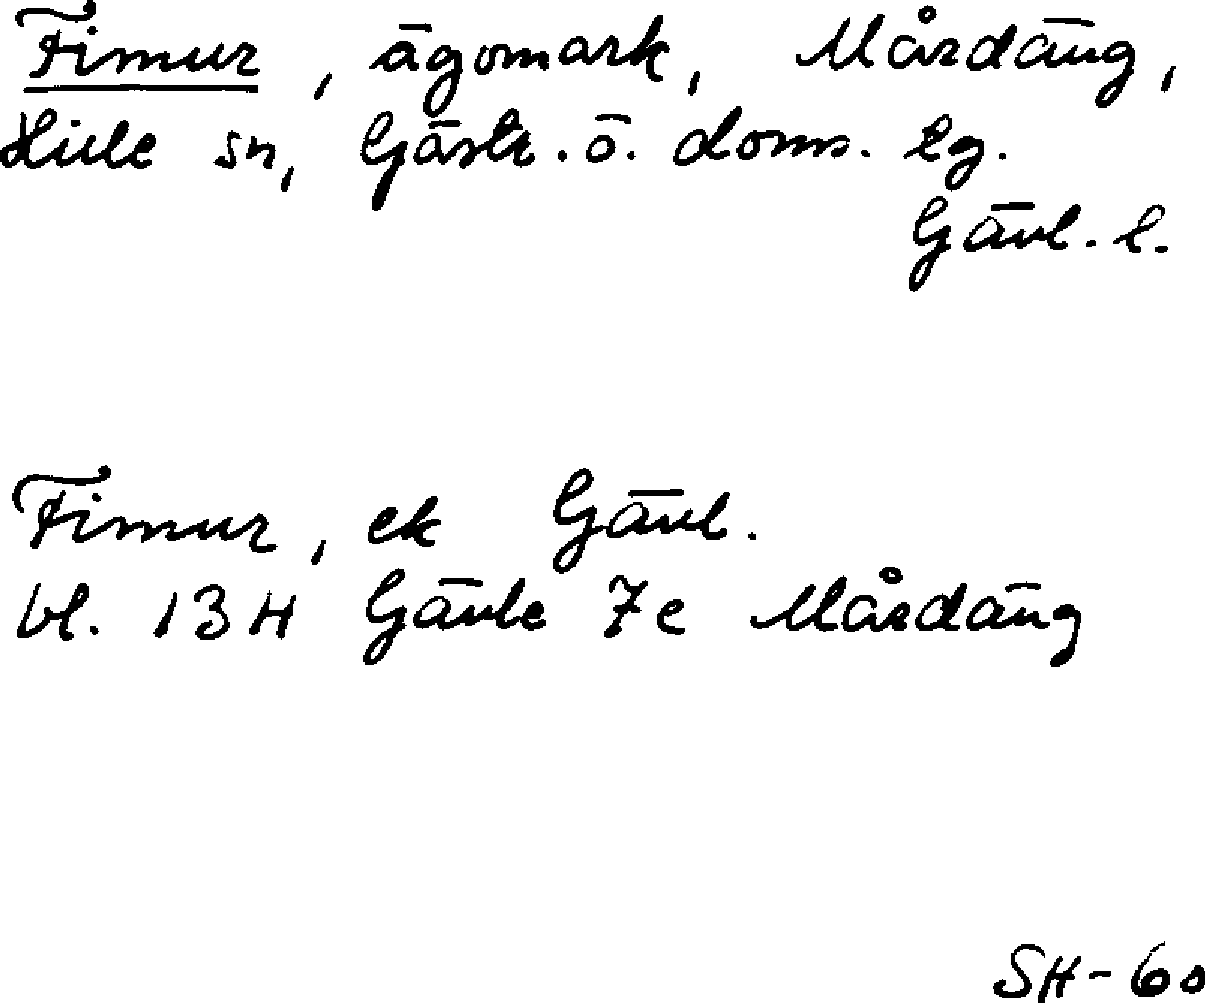 Fimur, ägomark, Mårdäng,
Hille sn, Gästr. ö. doms. lg.
Gävl. l.
Fimur, ek Gävl.
bl. 13H Gävle 7e Mårdäng
SH-60